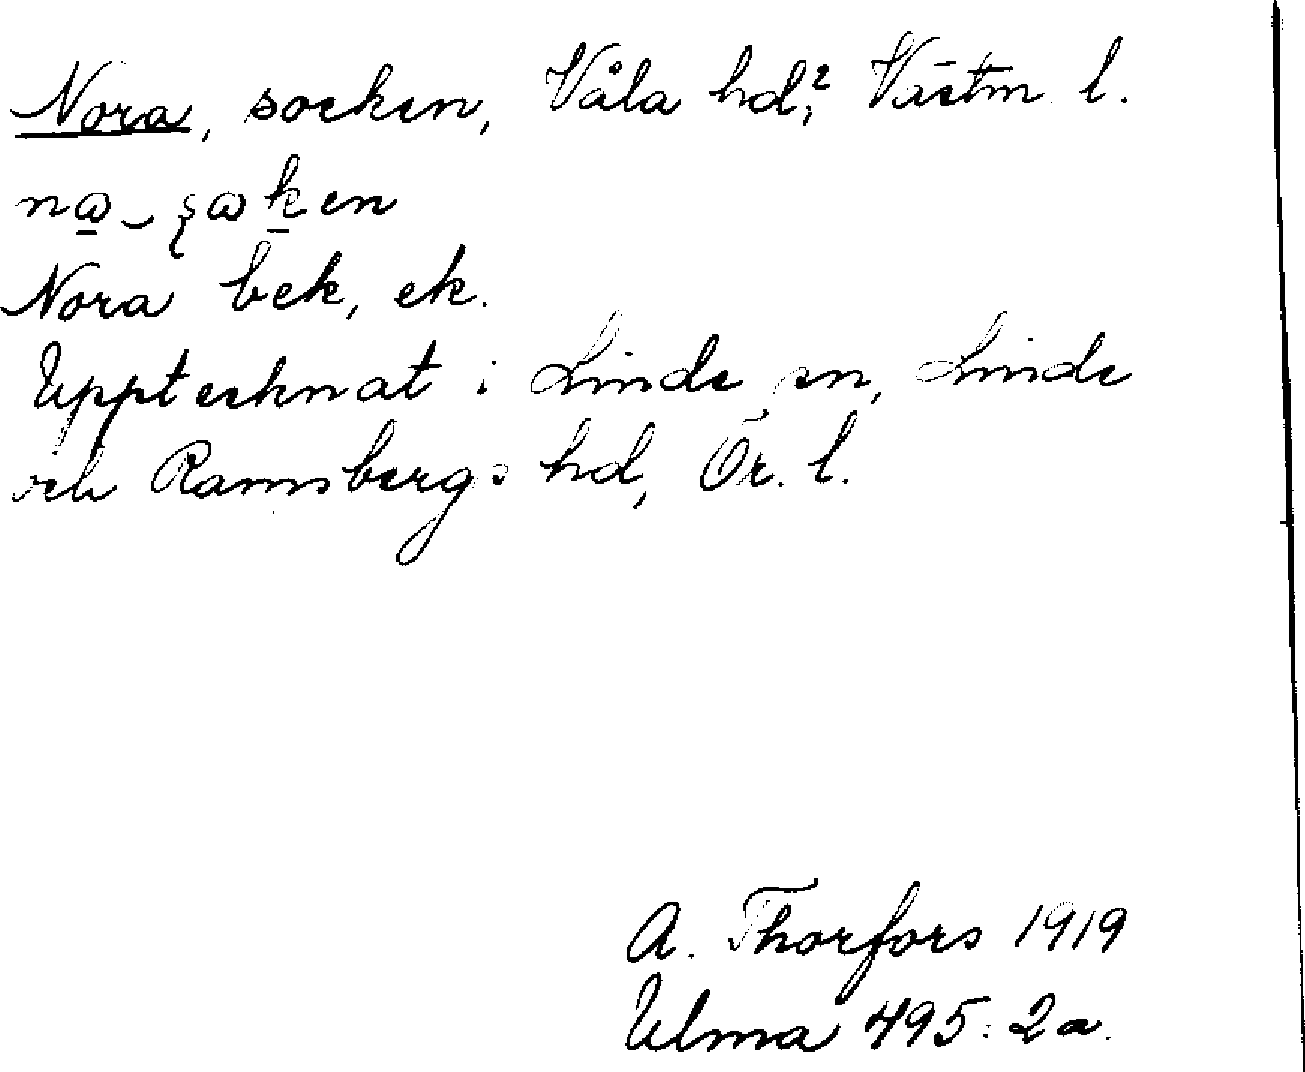 Nora, socken, Våla hd,? Västm l.
na̲‿ʂak̲en
Nora bek, ek.
Upptecknat i Linde sn, Linde
och Ramsbergs hd, Ör. l.
A. Thorfors 1919
Ulma 495:2a.